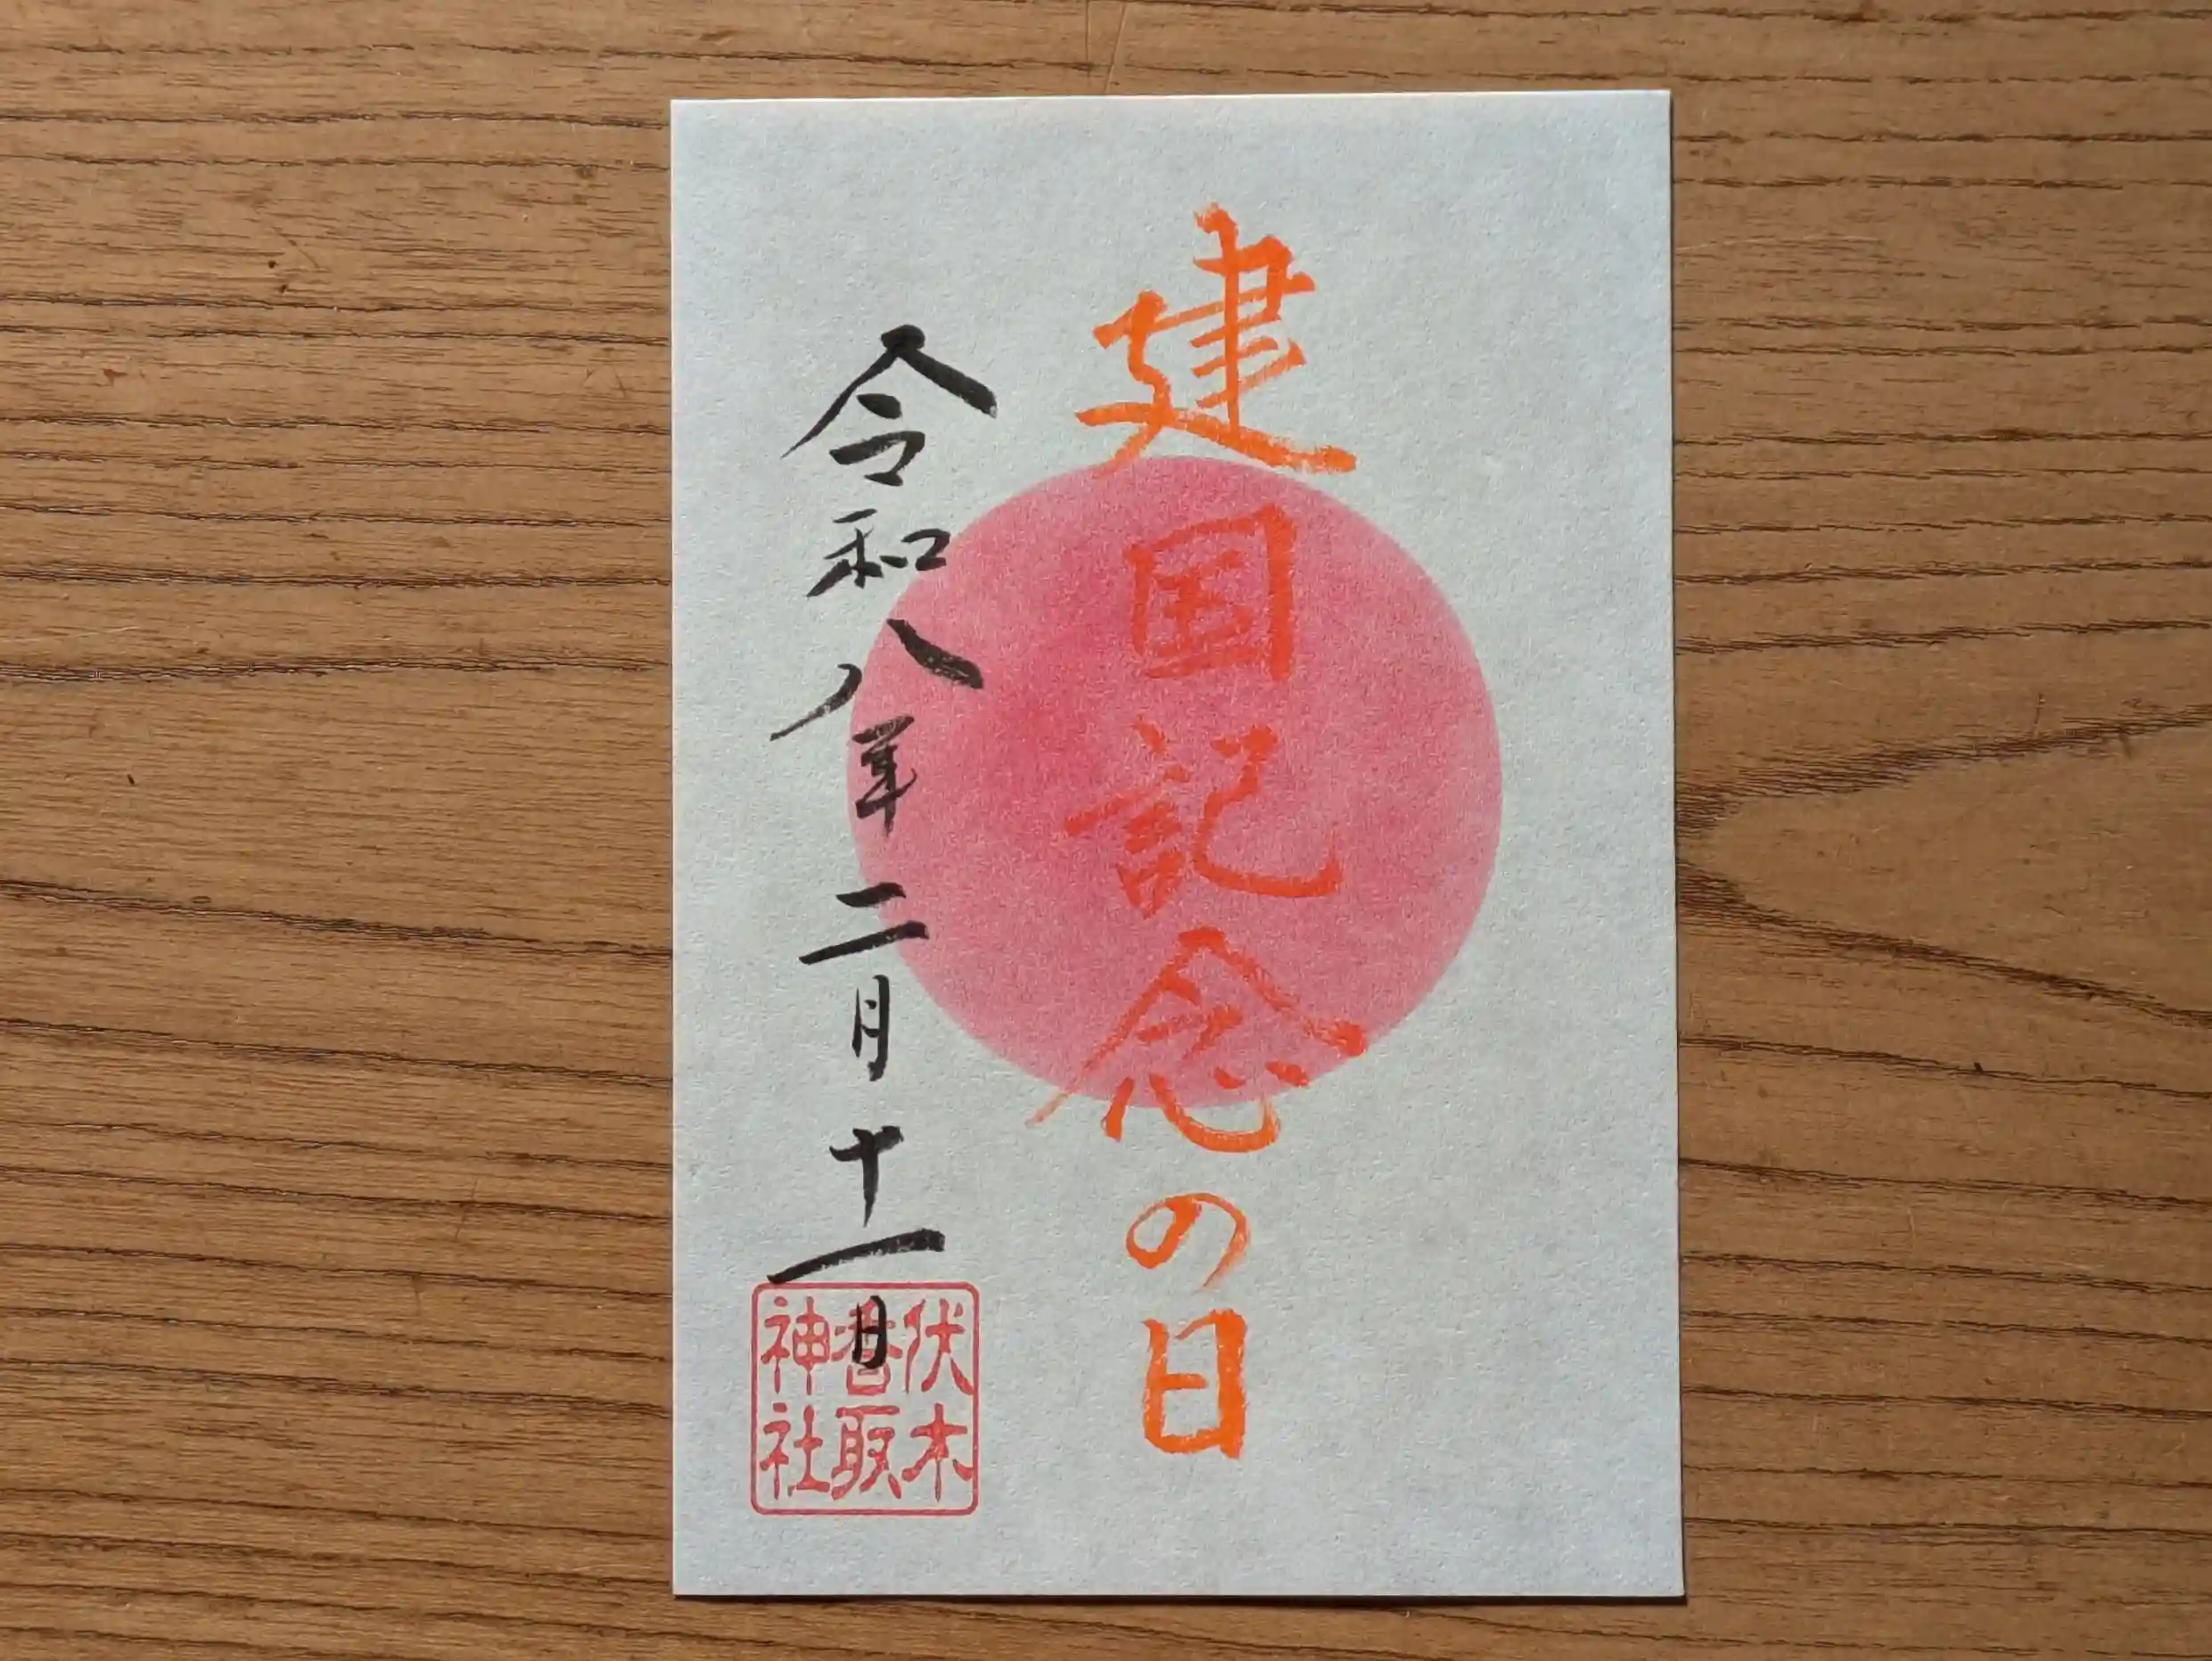 建国記念の日
令和八年二月十一日
伏木
香取
神社